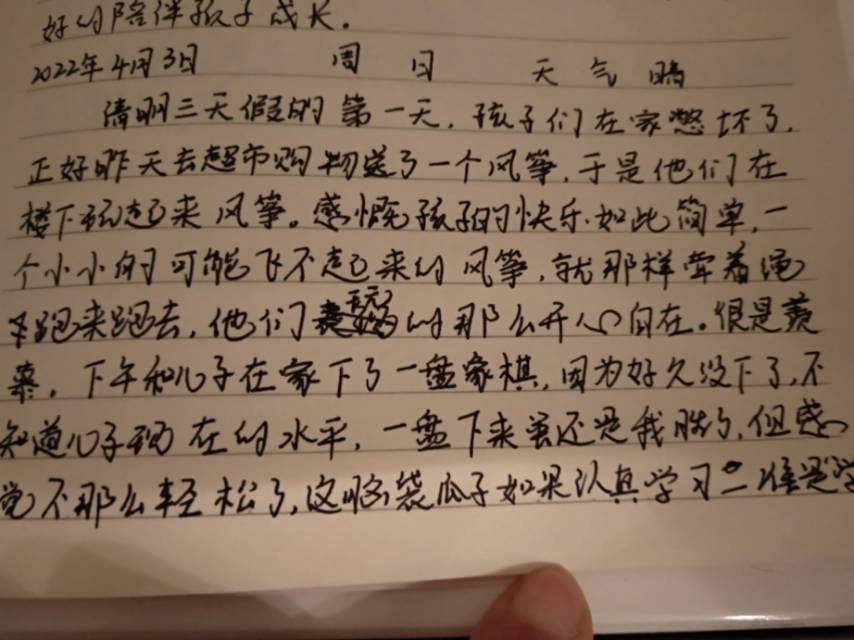 好的陪伴孩子成长.
2022年4月3日 周日 天气晴
清明三天假的第一天,孩子们在家憋坏了,
正好昨天去超市购物送了一个风筝,于是他们在
楼下玩起来风筝。感慨孩子的快乐如此简单,一
个小小的可能飞不起来的风筝,就那样牵着绳
跑来跑去,他们玩的那么开心自在。很是羡
慕。下午和儿子在家下了一盘象棋,因为好久没下了,不
知道儿子现在的水平,一盘下来虽还是我胜了,但感
觉不那么轻松了,这脑袋瓜子如果认真学习一准是学